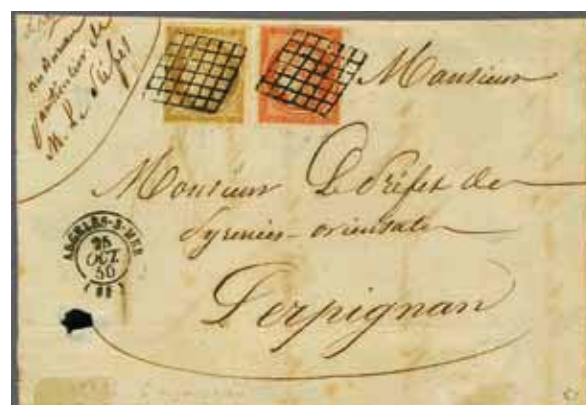 au bureau
particulier de
M. Le Préfet
Monsieur
Monsieur Le Préfet des
Pyrénées-orientales
Perpignan
ARGELES-S-MER
25
OCT.
50